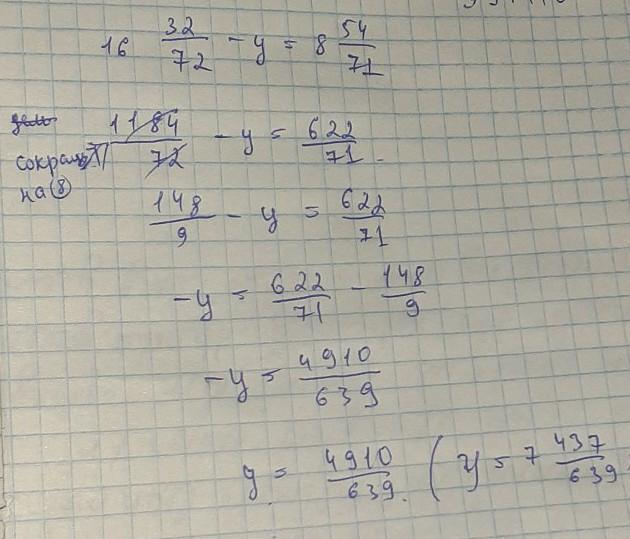 16 32/72 - y = 8 54/71
1184/72 - y = 622/71
на 8
148/9 - y = 622/71
-y = 622/71 - 148/9
-y = 4910/639
y = 4910/639. ( y = 7 437/639